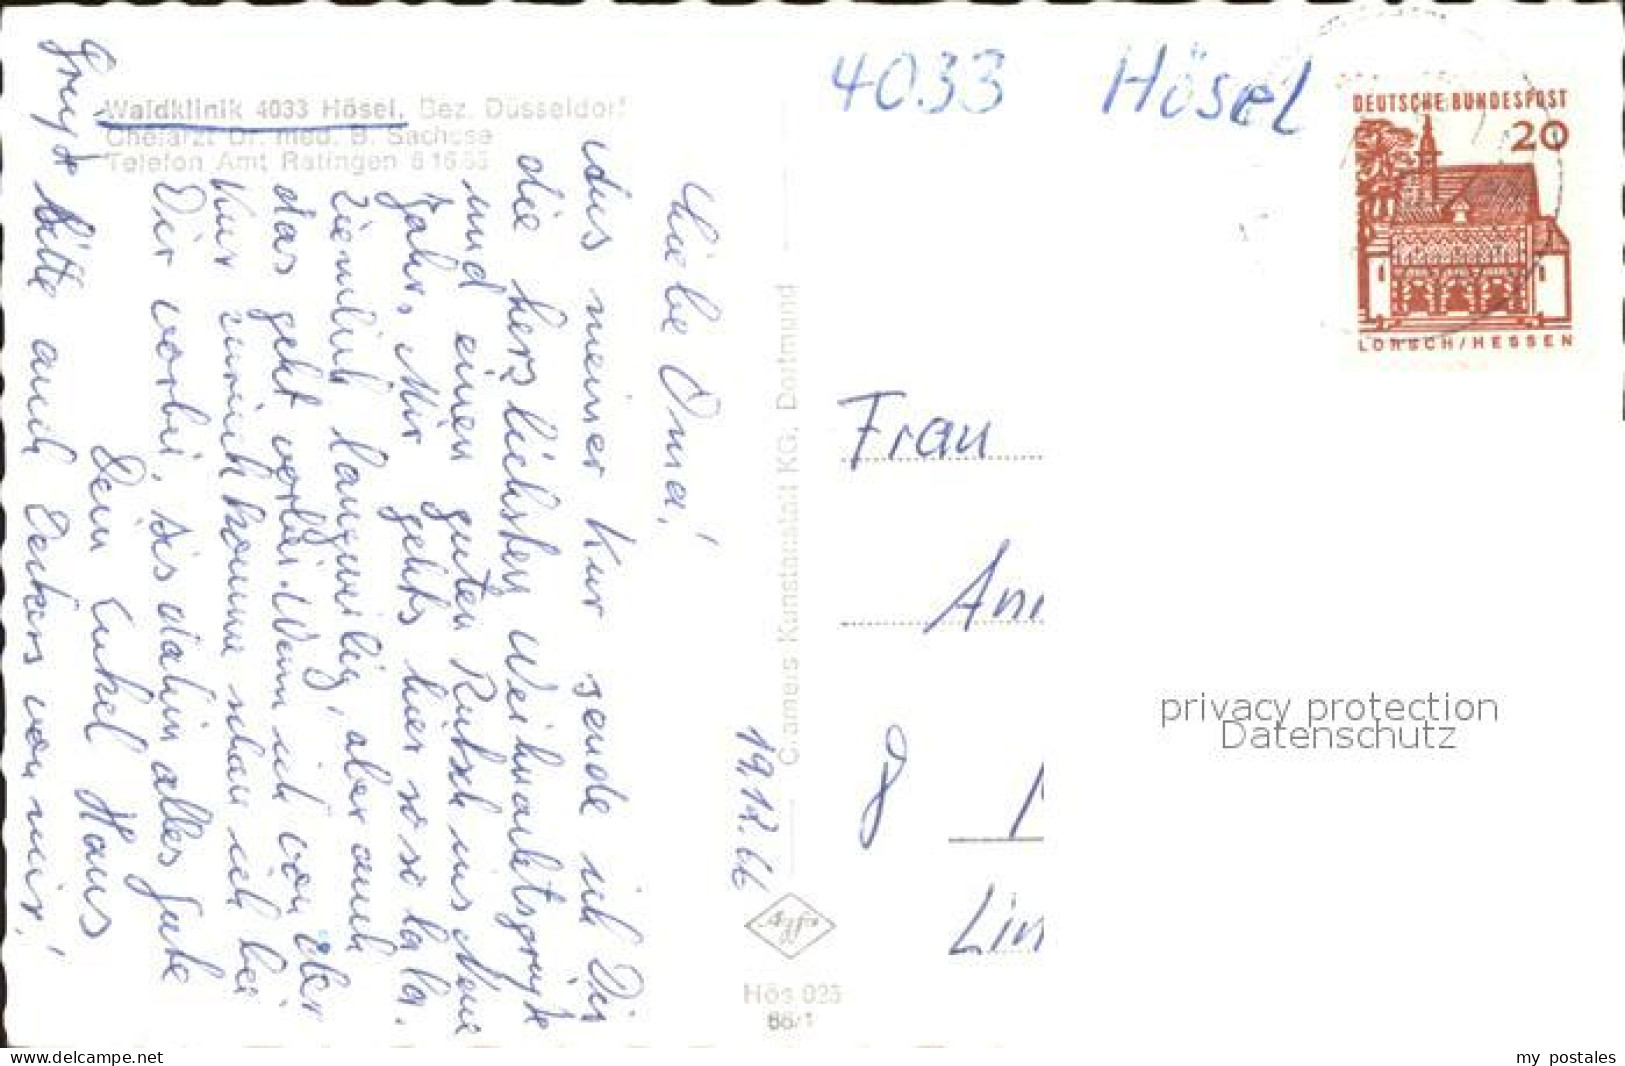 Waldklinik 4033 Hösel, Bez. Düsseldorf
Chefarzt Dr. med. B. Sachsse
Telefon Amt Ratingen 6 16 55
19.12.66
Liebe Oma!
Aus meiner Kur sende ich Dir
die herzlichsten Weihnachtsgrüße
und einen guten Rutsch ins Neue
Jahr. Mir gehts hier so so la la.
Ziemlich langweilig, aber auch
das geht vorbei. Wenn ich von der
Kur zurück komme schau ich bei
Dir vorbei. Bis dahin alles Gute
Dein Enkel Haus
Grüße bitte auch von mir!
Cramers Kunstanstalt KG. Dortmund
Agfa
Hös 025
66/1
4033 Hösel
DEUTSCHE BUNDESPOST
20
LORSCH/HESSEN
Frau
An
8
Lin
privacy protection
Datenschutz
www.delcampe.net
my_postales